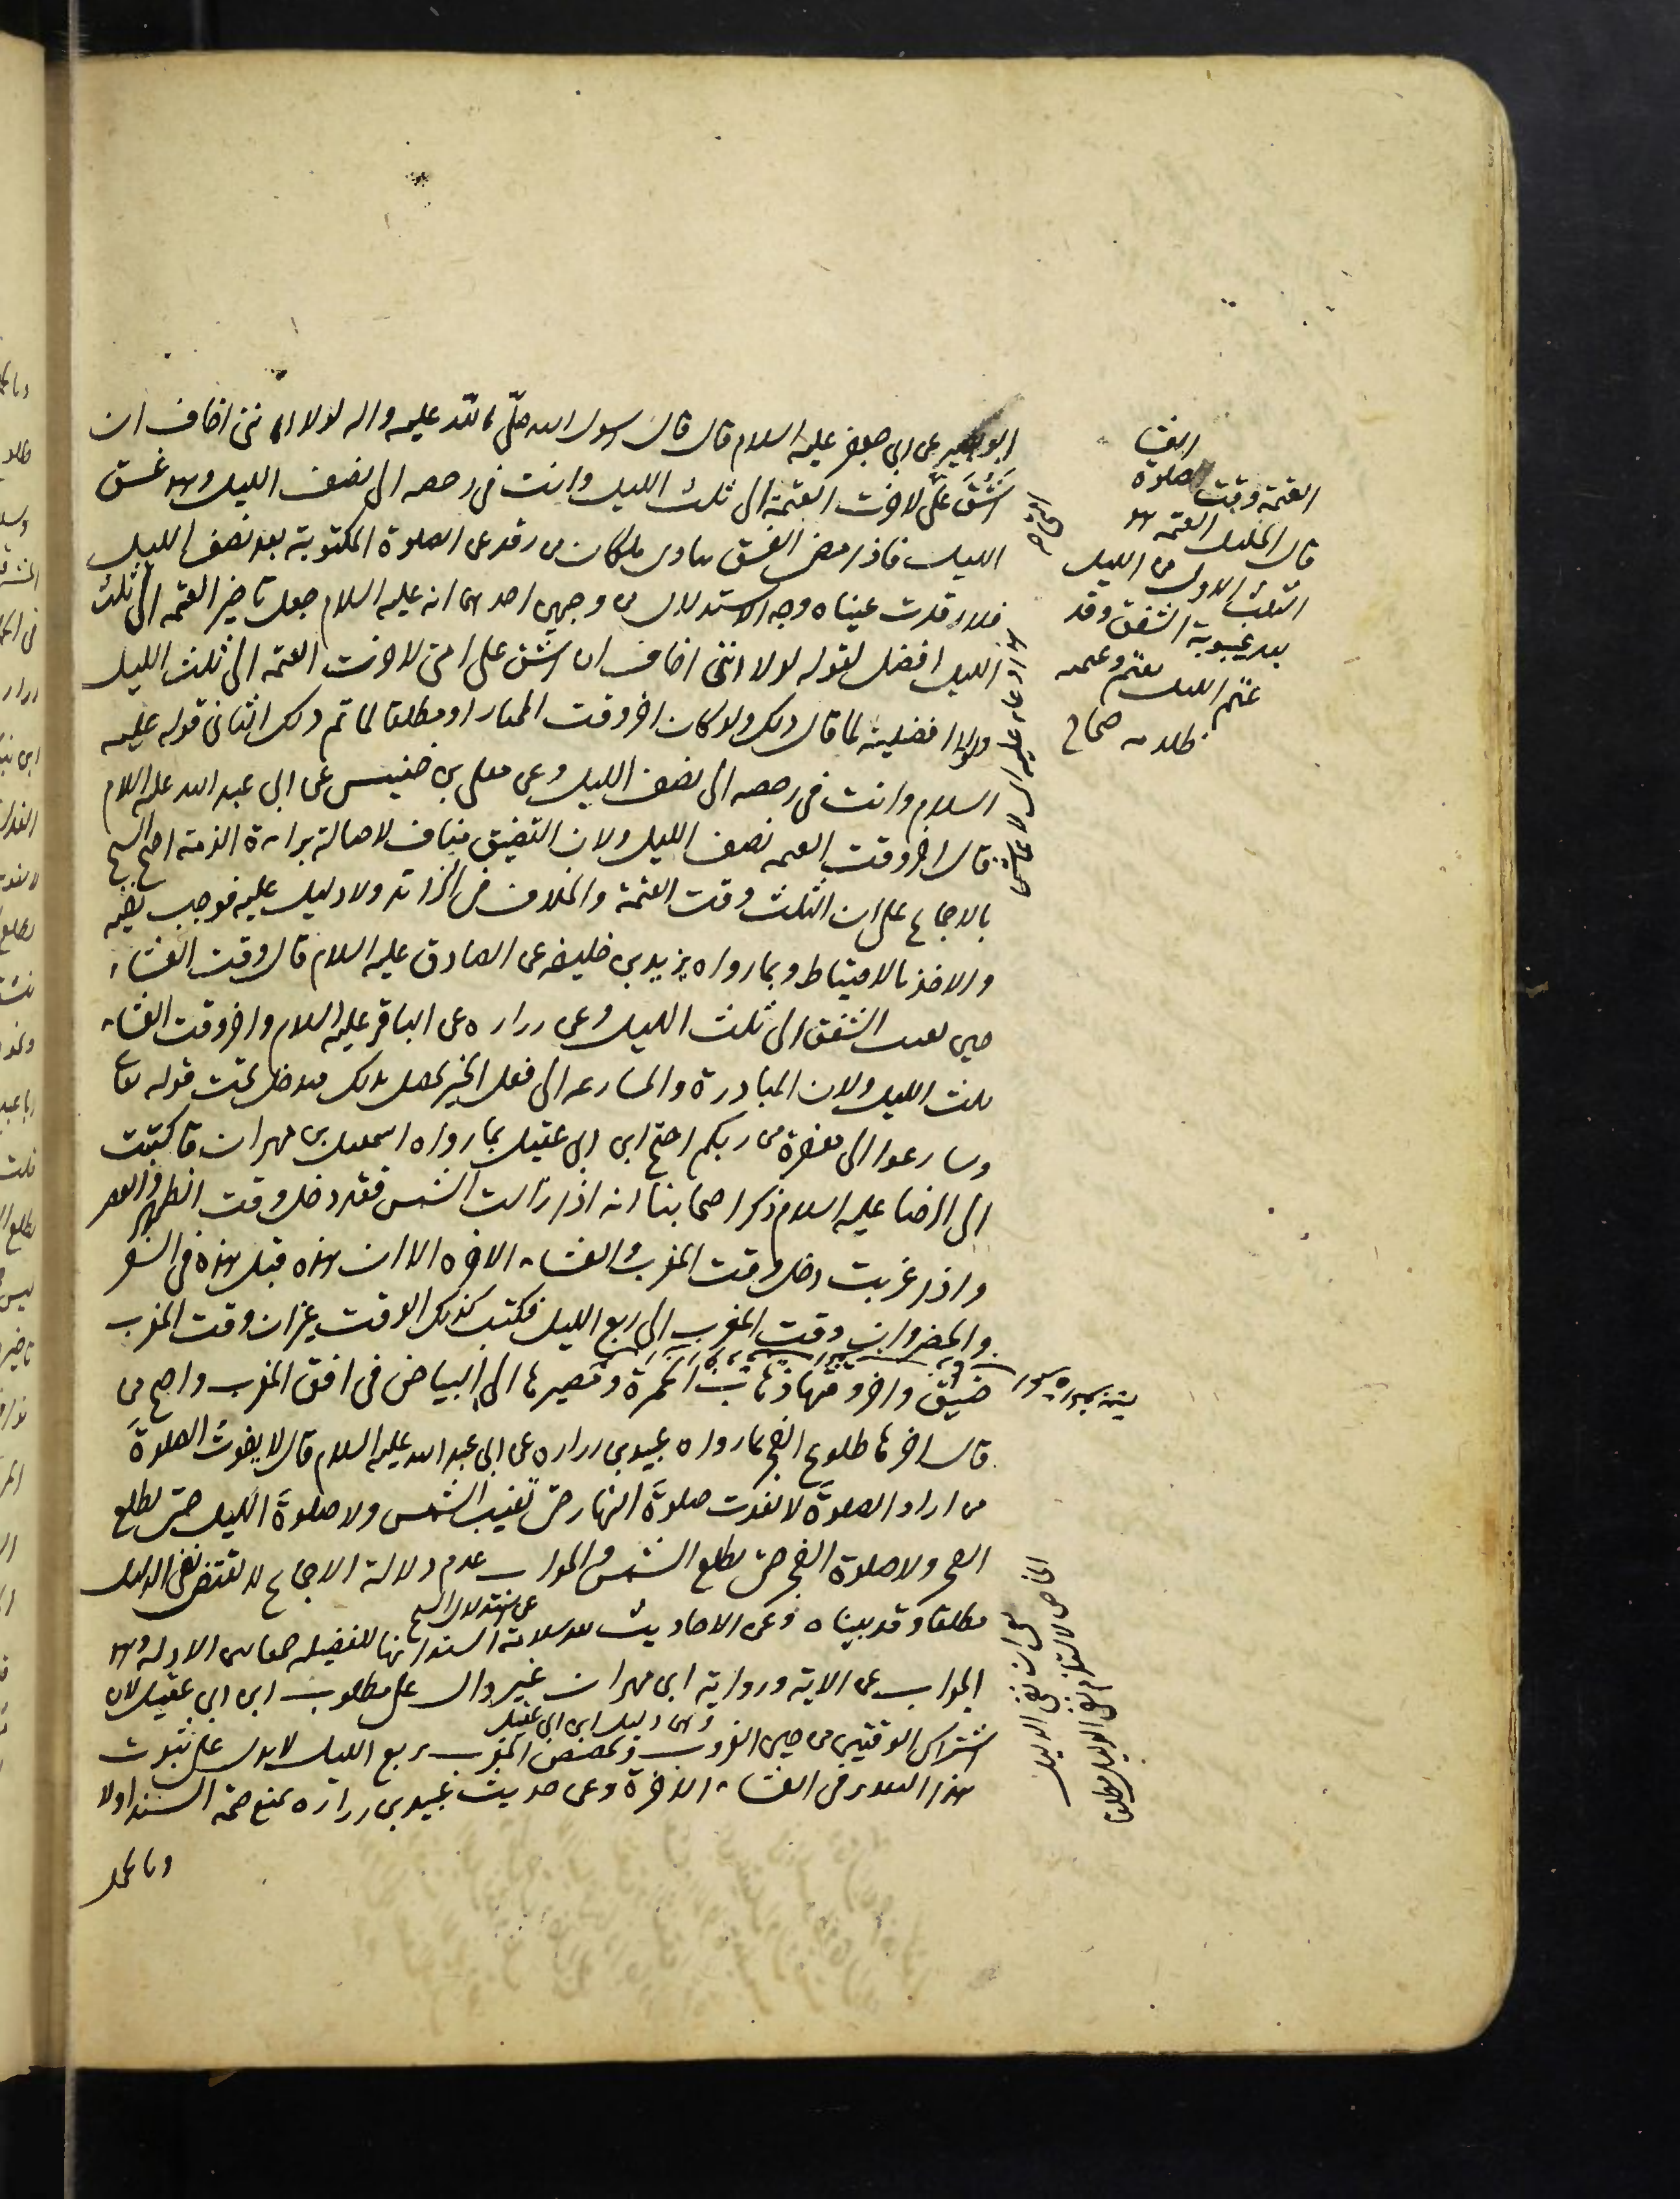 ابو بصير عن ابي جعفر عليه السلام قال قال رسول الله صلّى الله عليه واله لولا اننى اخاف ان
اشُقَّ على لاخرت العتمة الى ثلث الليل وانت فى رخصه الى نصف الليل وهو غسق
الليل فاذا مضى الغسق نادى ملكان من رقد عن الصلوة المكتوبة بعد نصف الليل
فلا رقدت عيناه وجه الاستدلال من وجهين احدهما انه عليه السلام جعل تاخير العتمه الى ثلث
الليل افضل لقوله لولا اننى اخاف ان اشق على امتى لاخرت العتمه الى ثلث الليل
ولولا افضليته لما قال ذلك ولو كان اخر وقت المختار او مطلقا لما تم ذلك الثانى قوله عليه
السلام وانت فى رخصه الى نصف الليل وعن معلى بن خنيس عن ابى عبد الله عليه السلام
قال اخر وقت العتمه نصف الليل ولان التضيق مناف لاصالة براءة الذمة احتج الشيخ
بالاجماع على ان الثلث وقت العتمة والخلاف فى الزائد ولا دليل عليه فوجب نفيه
والاخذ بالاحتياط وبما رواه يزيد بن خليفه عن الصادق عليه السلام قال وقت العشاء
حين يغيب الشفق الى ثلث الليل وعن زراره عن الباقر عليه السلام واخر وقت العشاء
ثلث الليل ولان المبادرة والمسارعه الى فعل الخير يحصل بذلك فيدخل تحت قوله تعالى
وسارعوا الى مغفرة من ربكم احتج ابن ابى عقيل بما رواه اسمعيل بن مهران قال كتبت
الى الرضا عليه السلام ذكر اصحابنا انه اذا زالت الشمس فقد دخل وقت الظهر والعصر
واذا غربت دخل وقت المغرب والعشاء الاخره الا ان هذه قبل هذه فى السفر
والحضر وان وقت المغرب الى ربع الليل فكتب كذلك الوقت غير ان وقت المغرب
ضيق واخر وقتها ذهاب الحمرة ومصيرها الى البياض فى افق المغرب واحتج من
قال اخرها طلوع الفجر بما رواه عبيد بن زراره عن ابى عبد الله عليه السلام قال لا يفوت الصلوة
من اراد الصلوة لا تفوت صلوة النهار حتى تغيب الشمس ولا صلوة الليل حتى يطلع
الفجر ولا صلوة الفجر حتى يطلع الشمس والجواب عدم دلالة الاجماع لا يقتضى نفى الدليل
مطلقا وقد بيناه وعن الاحاديث بعد سلامة السند انها للفضيله جمعا بين الادله وهو
عن استدلال الشيخ
الجواب عن الاية ورواية ابن مهران غير دال على مطلوب ابن ابى عقيل لان
وهى دليل ابن ابى عقيل
اشتراك الوقتين من حين الغروب وتخصيص المغرب بربع الليل لا يدل على ثبوت
هذا التقدير فى العشاء الاخرة وعن حديث عبيد بن زراره بمنع صحة السند اولا
وبالحمل
العشا
العتمة وقت صلوة
قال الخليل العتمه هو
الثلث الاول من الليل
بعد غيبوبة الشفق وقد
عتم الليل يعتم وعتمه
ظلامه صحاح